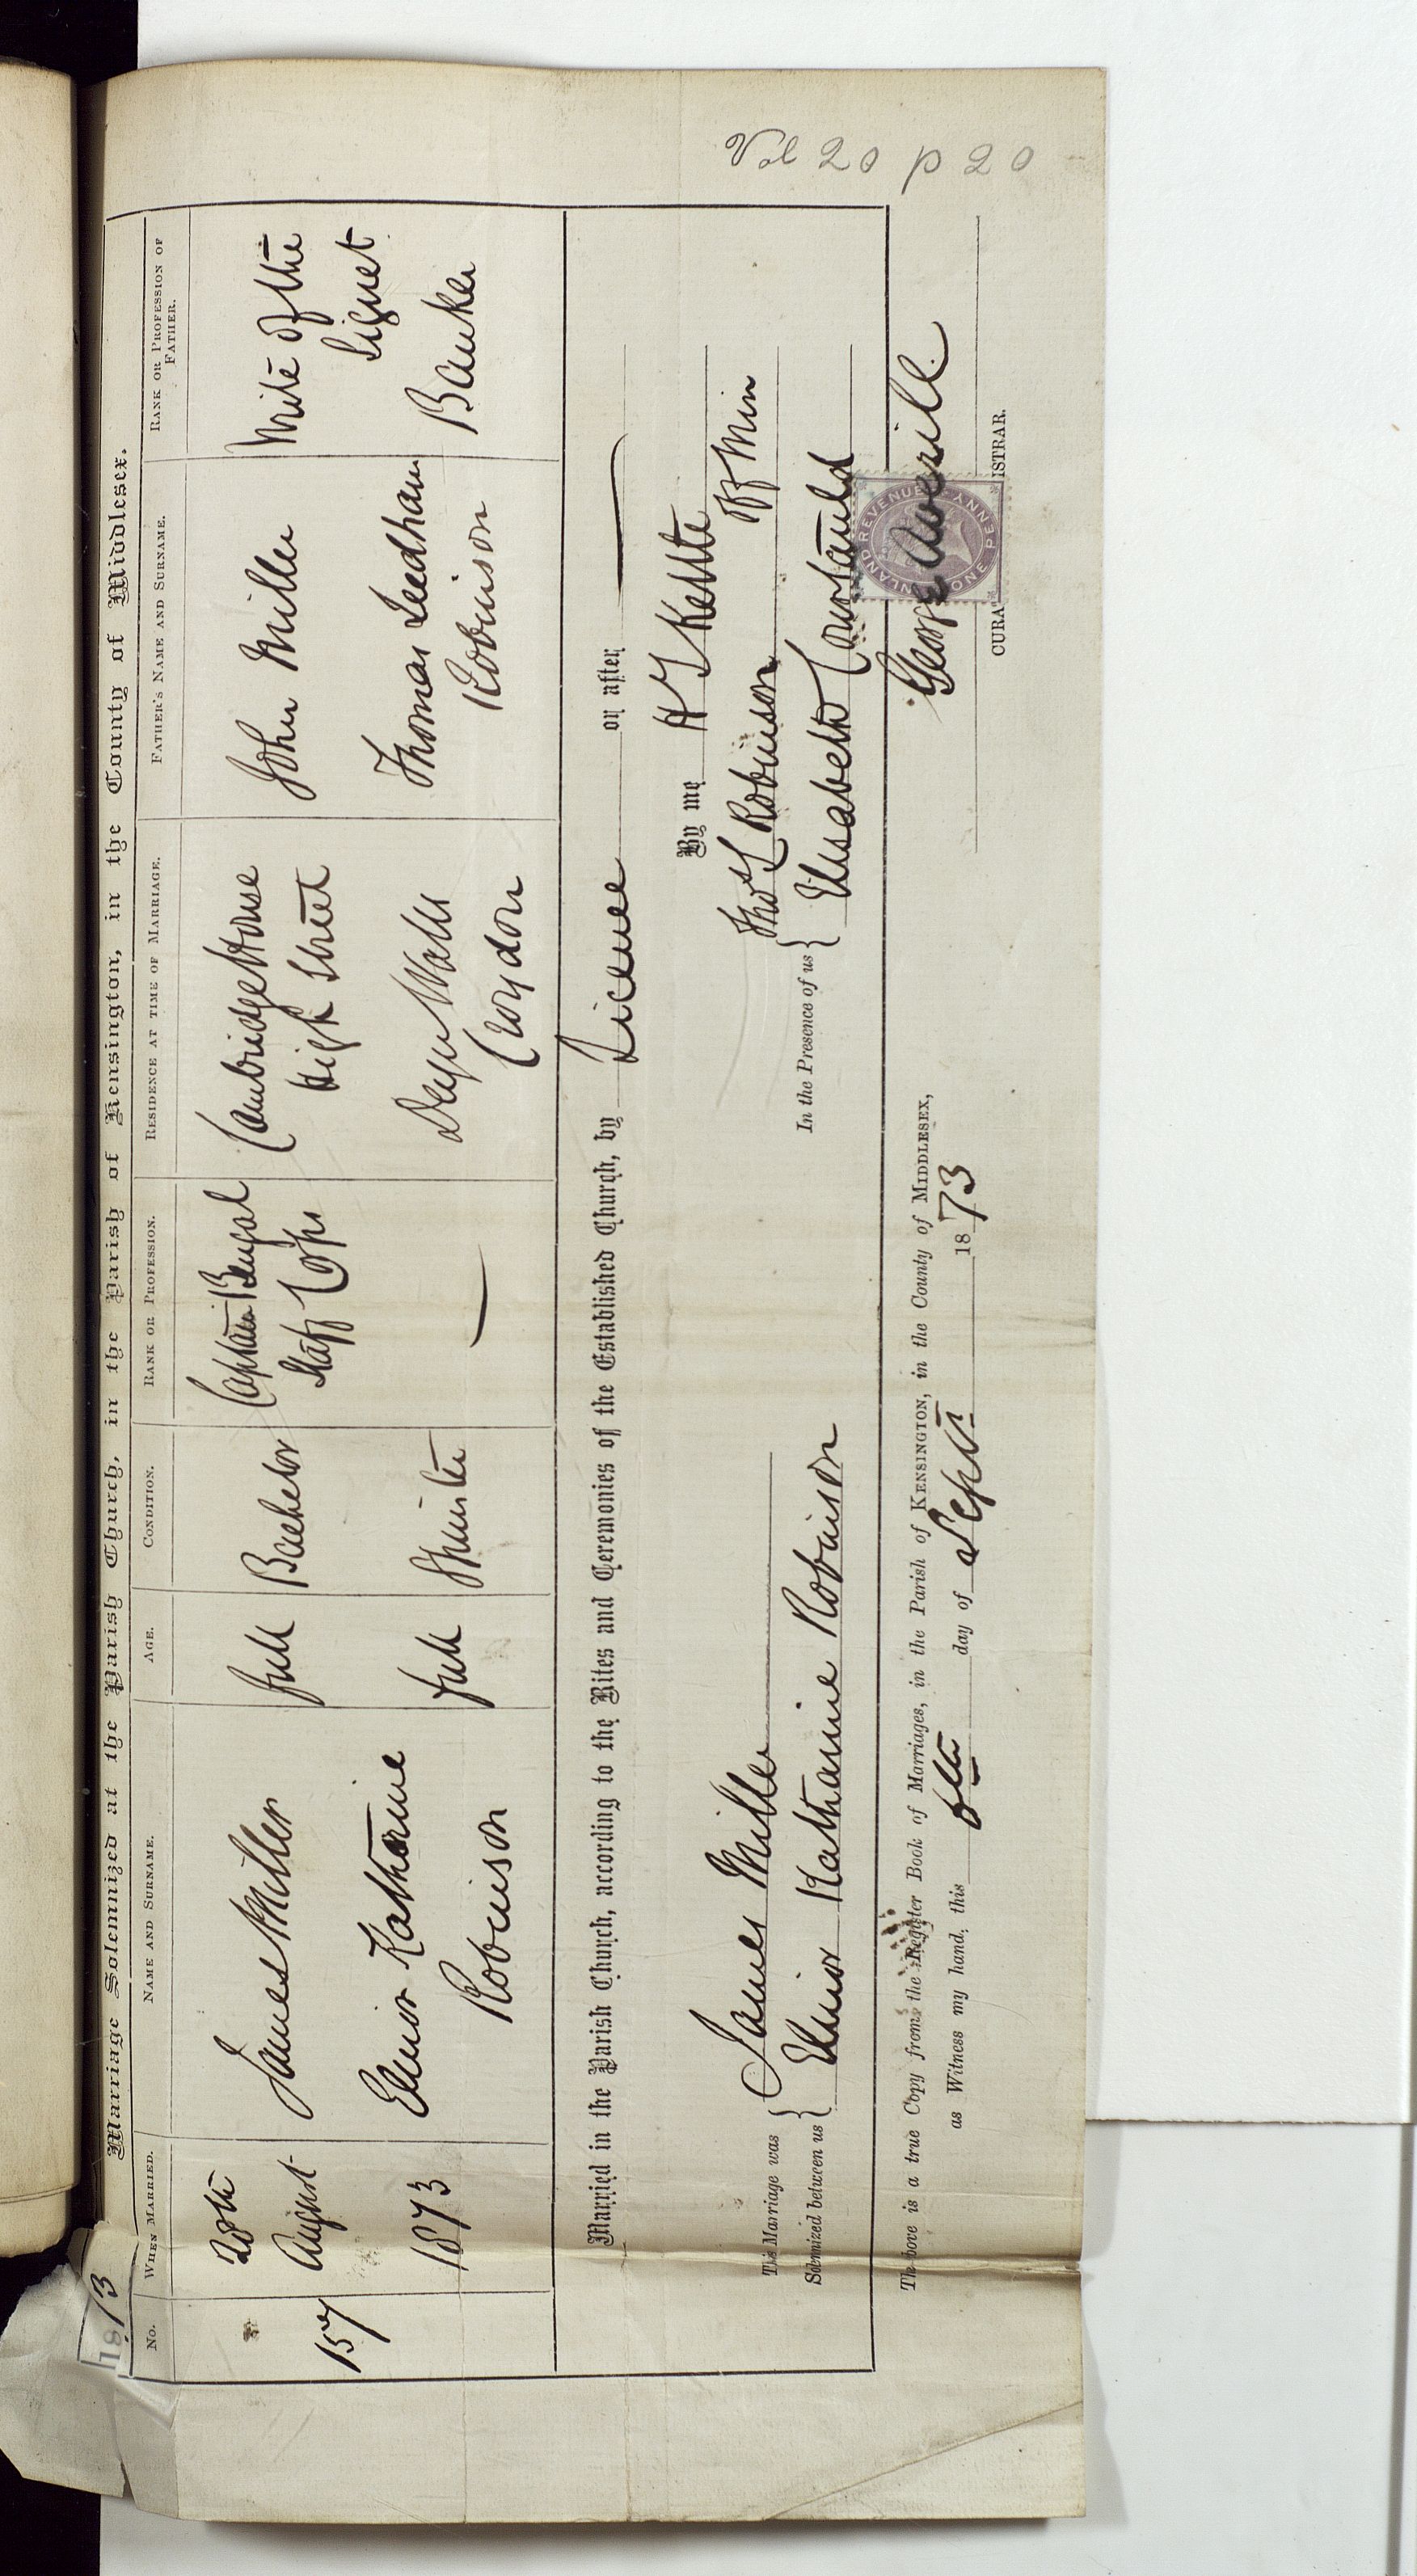 Vol 20 p 20
1873
Marriage Solemnized at the Parish Church, in the Parish of Kensington, in the County of Middlesex.
No.
WHEN MARRIED.
NAME AND SURNAME.
AGE.
CONDITION.
RANK OR PROFESSION.
RESIDENCE AT TIME OF MARRIAGE.
FATHER'S NAME AND SURNAME.
RANK OR PROFESSION OF
FATHER.
157
28th
August
1873
James Miller
full
Bachelor
Captain Bengal
Staff Corps
Cambridge House
High Street
John Miller
Write of the
Signet
Elinor Katharine
Robinson
full
Spinster
Croydon
Thomas Leedham
Robinson
Banker
Married in the Parish Church, according to the Rites and Ceremonies of the Established Church, by Licence or after
By me H L Off Min
This Marriage was
Solemnized between us
James Miller
Elinor Katharine Robinson
In the Presence of us
Thos L Robinson
Elisabeth Courtauld
The above is a true Copy from the Register Book of Marriages, in the Parish of KENSINGTON, in the County of MIDDLESEX,
as Witness my hand, this 6th day of Septr 1873
George Averill
CURA ISTRAR.
INLAND REVENUE
ONE PENNY